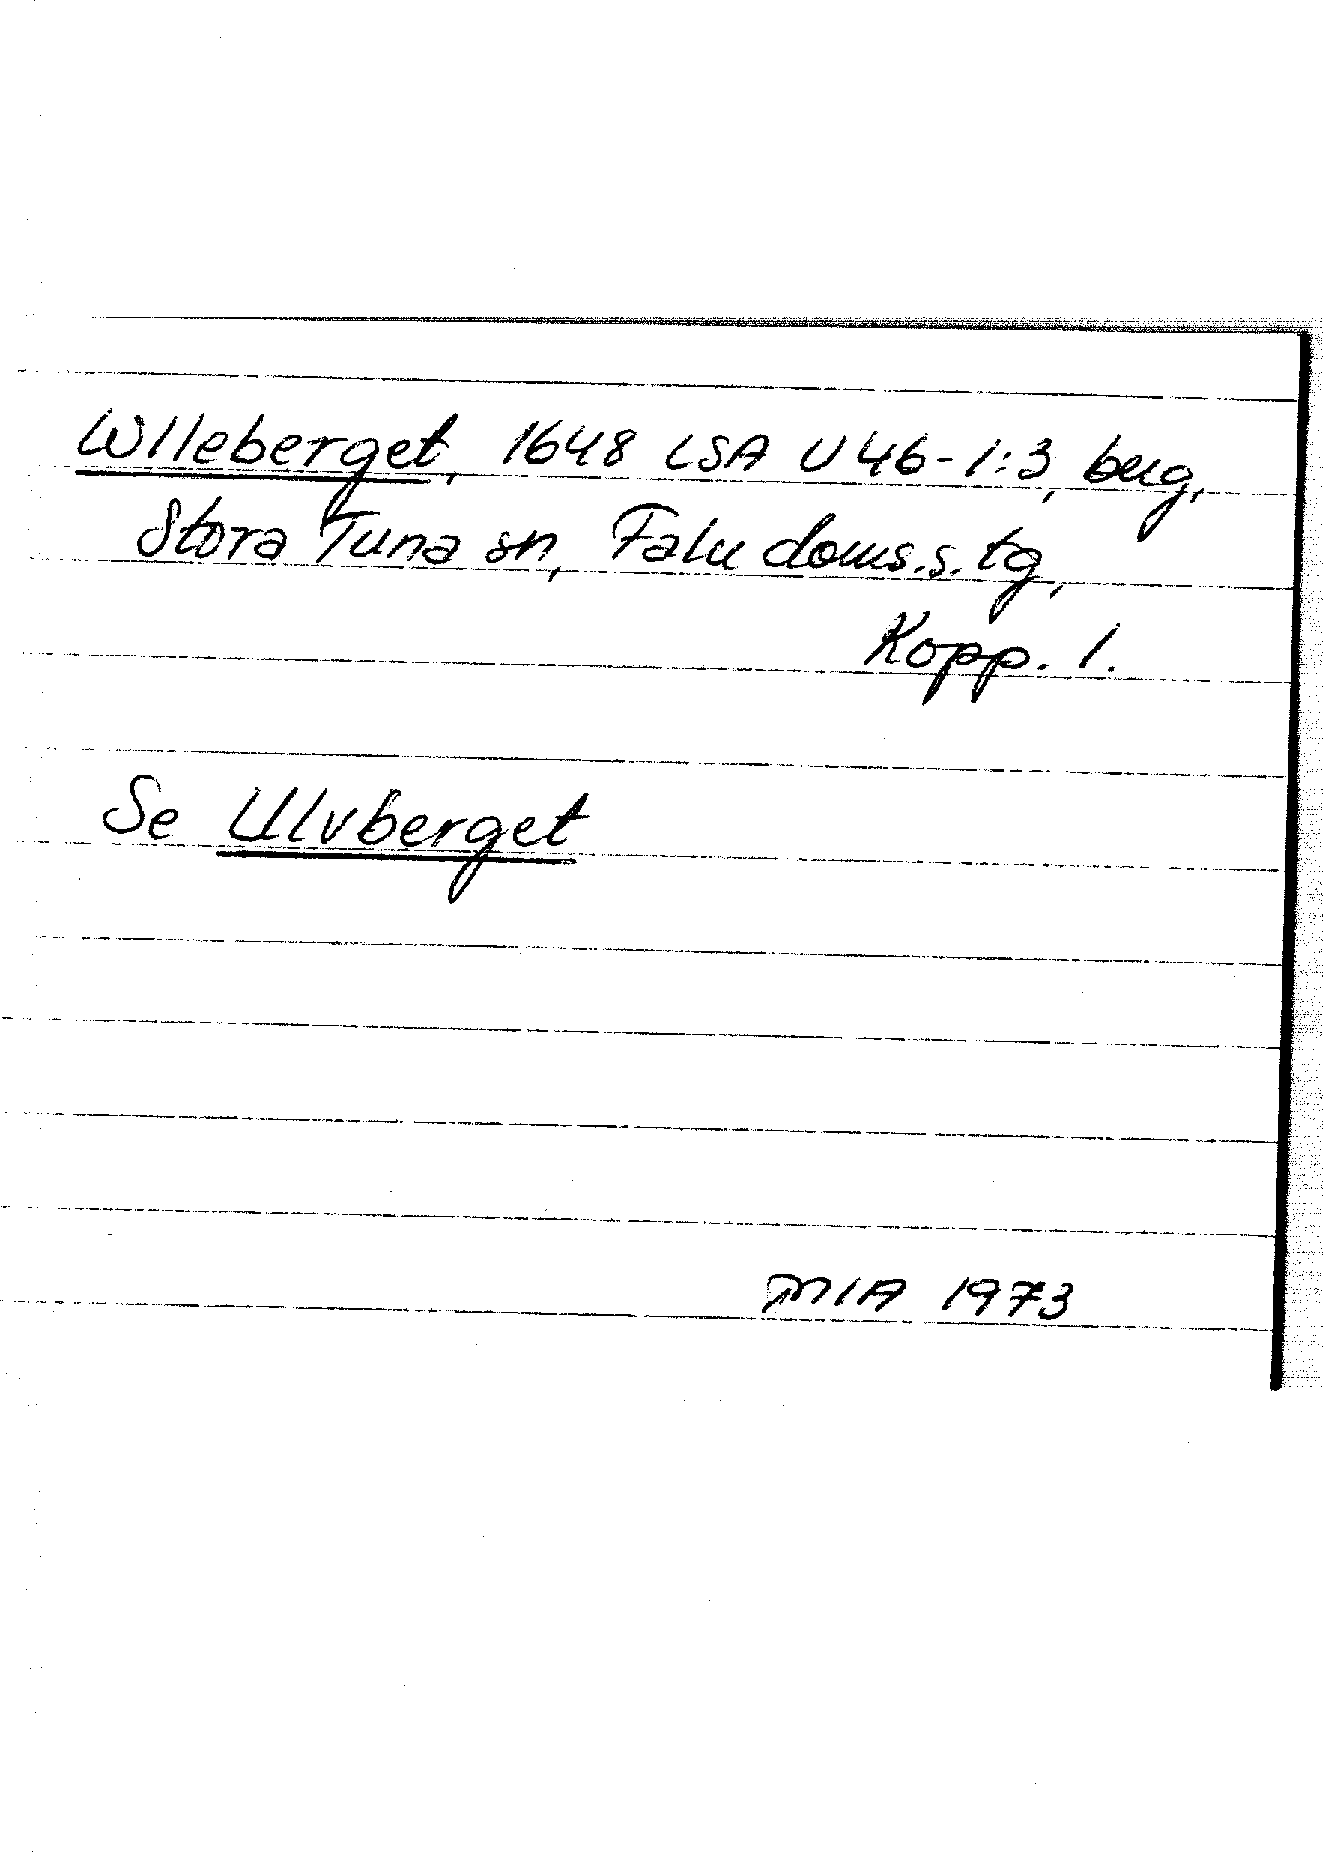 Wlleberget, 1648 LSA U 46-1:3, berg,
Stora Tuna sn, Falu doms.s. tg,
Kopp. l.
Se Ulvberget
MIA 1973